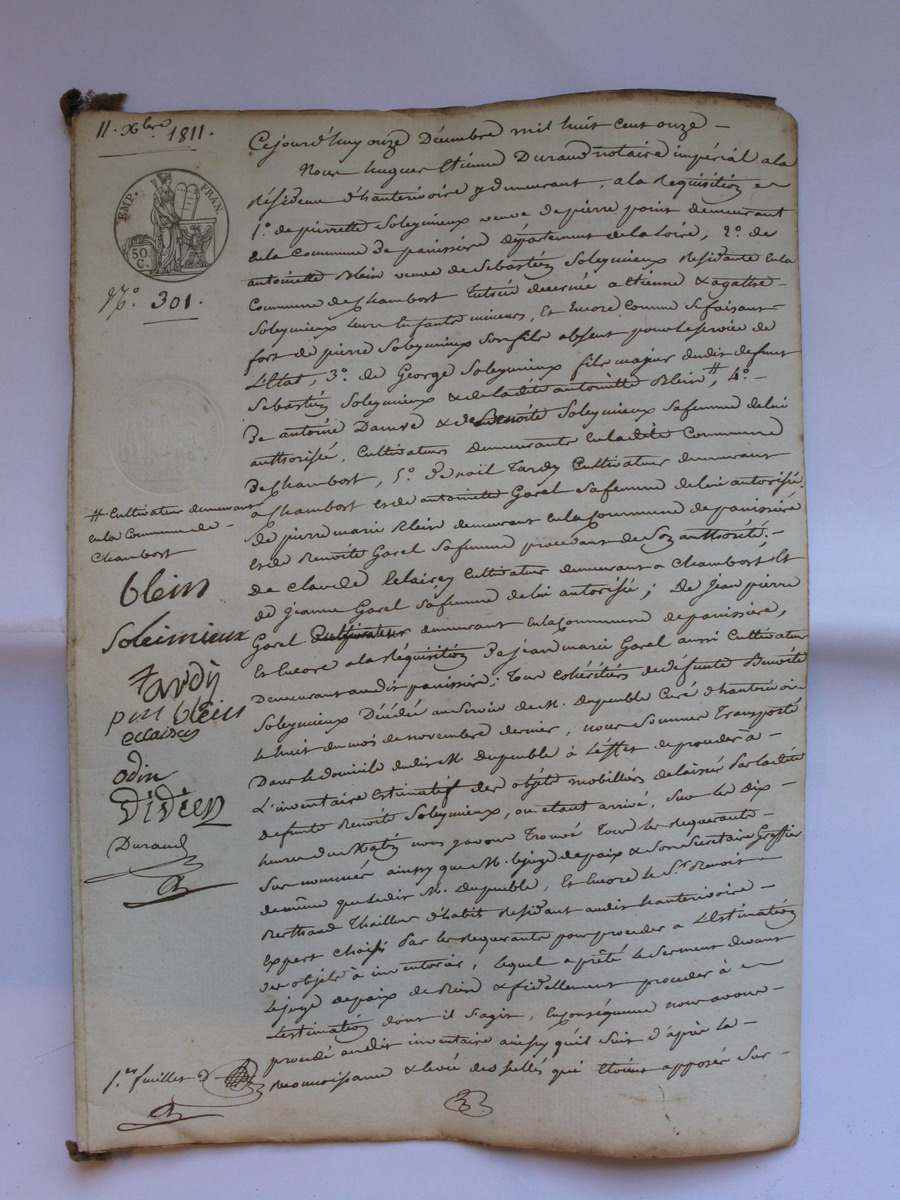 11. Xbre. 1811.
EMP. FRAN.
50 C.
N.º 301.
Cejourd'huy onze Décembre mil huit cent onze –
Nous hugues Etienne Durand notaire impérial a la
Résidence d'hauterivoire y demeurant, a la Requisition
1.º de pierrette Soleymieux veuve de pierre point demeurant
en la Commune de panissiere département de la Loire, 2.º de
antoinette Blein veuve de Sebastien Soleymieux Residante en la
Commune de Chambost Tutrice decernée a Etienne & agathe –
Soleymieux leurs Enfants mineurs, Et Encore comme se faisant
fort de pierre Soleymieux son fils absent pour le service de
L'Etat, 3.º de George Soleymieux fils majeur dudit defunt
Sebastien Soleymieux & de ladite antoinette Blein #, 4.º –
De antoine Damve & de Benoite Soleymieux sa femme de lui
authorisée, Cultivateurs demeurants en ladite Commune
De Chambost, 5.º de noël Tardy Cultivateur demeurant
a Chambost et de antoinette Garel sa femme de lui autorisée,
de pierre marie Blein demeurant en la Commune de panissière
et de Benoite Garel sa femme procédant de son authorité. –
de Claude Eclaircy Cultivateur demeurant a Chambost et
de Jeanne Garel sa femme de lui autorisée; De Jean pierre
Garel Cultivateur demeurant en la Commune de panissière,
Et Encore a la Réquisition De jean marie Garel aussi Cultivateur
Demeurant audit panissiere; Tous cohéritiers de défunte Benoite
Soleymieux Décédée au Service de M. dupeuble Curé d'hauterivoire
le huit du mois de novembre dernier, nous sommes Transporté
Dans le domicile dudit M. dupeuble à L'effet de procéder à –
L'inventaire estimatif des objets mobilliers delaissés par ladite
defunte Benoite Soleymieux, ou étant arrivé, Sur les dix –
heures du Matin nous y avons Trouvé Tous les Requerants –
Sus nommés ainsy que M. le juge de paix & son Secretaire Greffier
de même que ledit M. dupeuble, Et Encore le Sr. Benoit –
Berthaud Tailleur d'habit Résidant audit hauterivoire –
Expert choisi par les Requerants pour procéder a L'Estimation
des objets à inventorier, lequel a prêté le Serment devant
Le juge de paix de Bien & fidellement procéder à
L'estimation dont il s'agit, En conséquence nous avons –
procédé audit inventaire ainsy qu'il suit d'après la –
Reconnoissance & levée des scellés qui étoient apposés Sur –
# Cultivateur demeurant
en la Commune de –
Chambost
blein
Soleimieux
Tardy
blein
odin
Didien
Durand
1.er feuillet